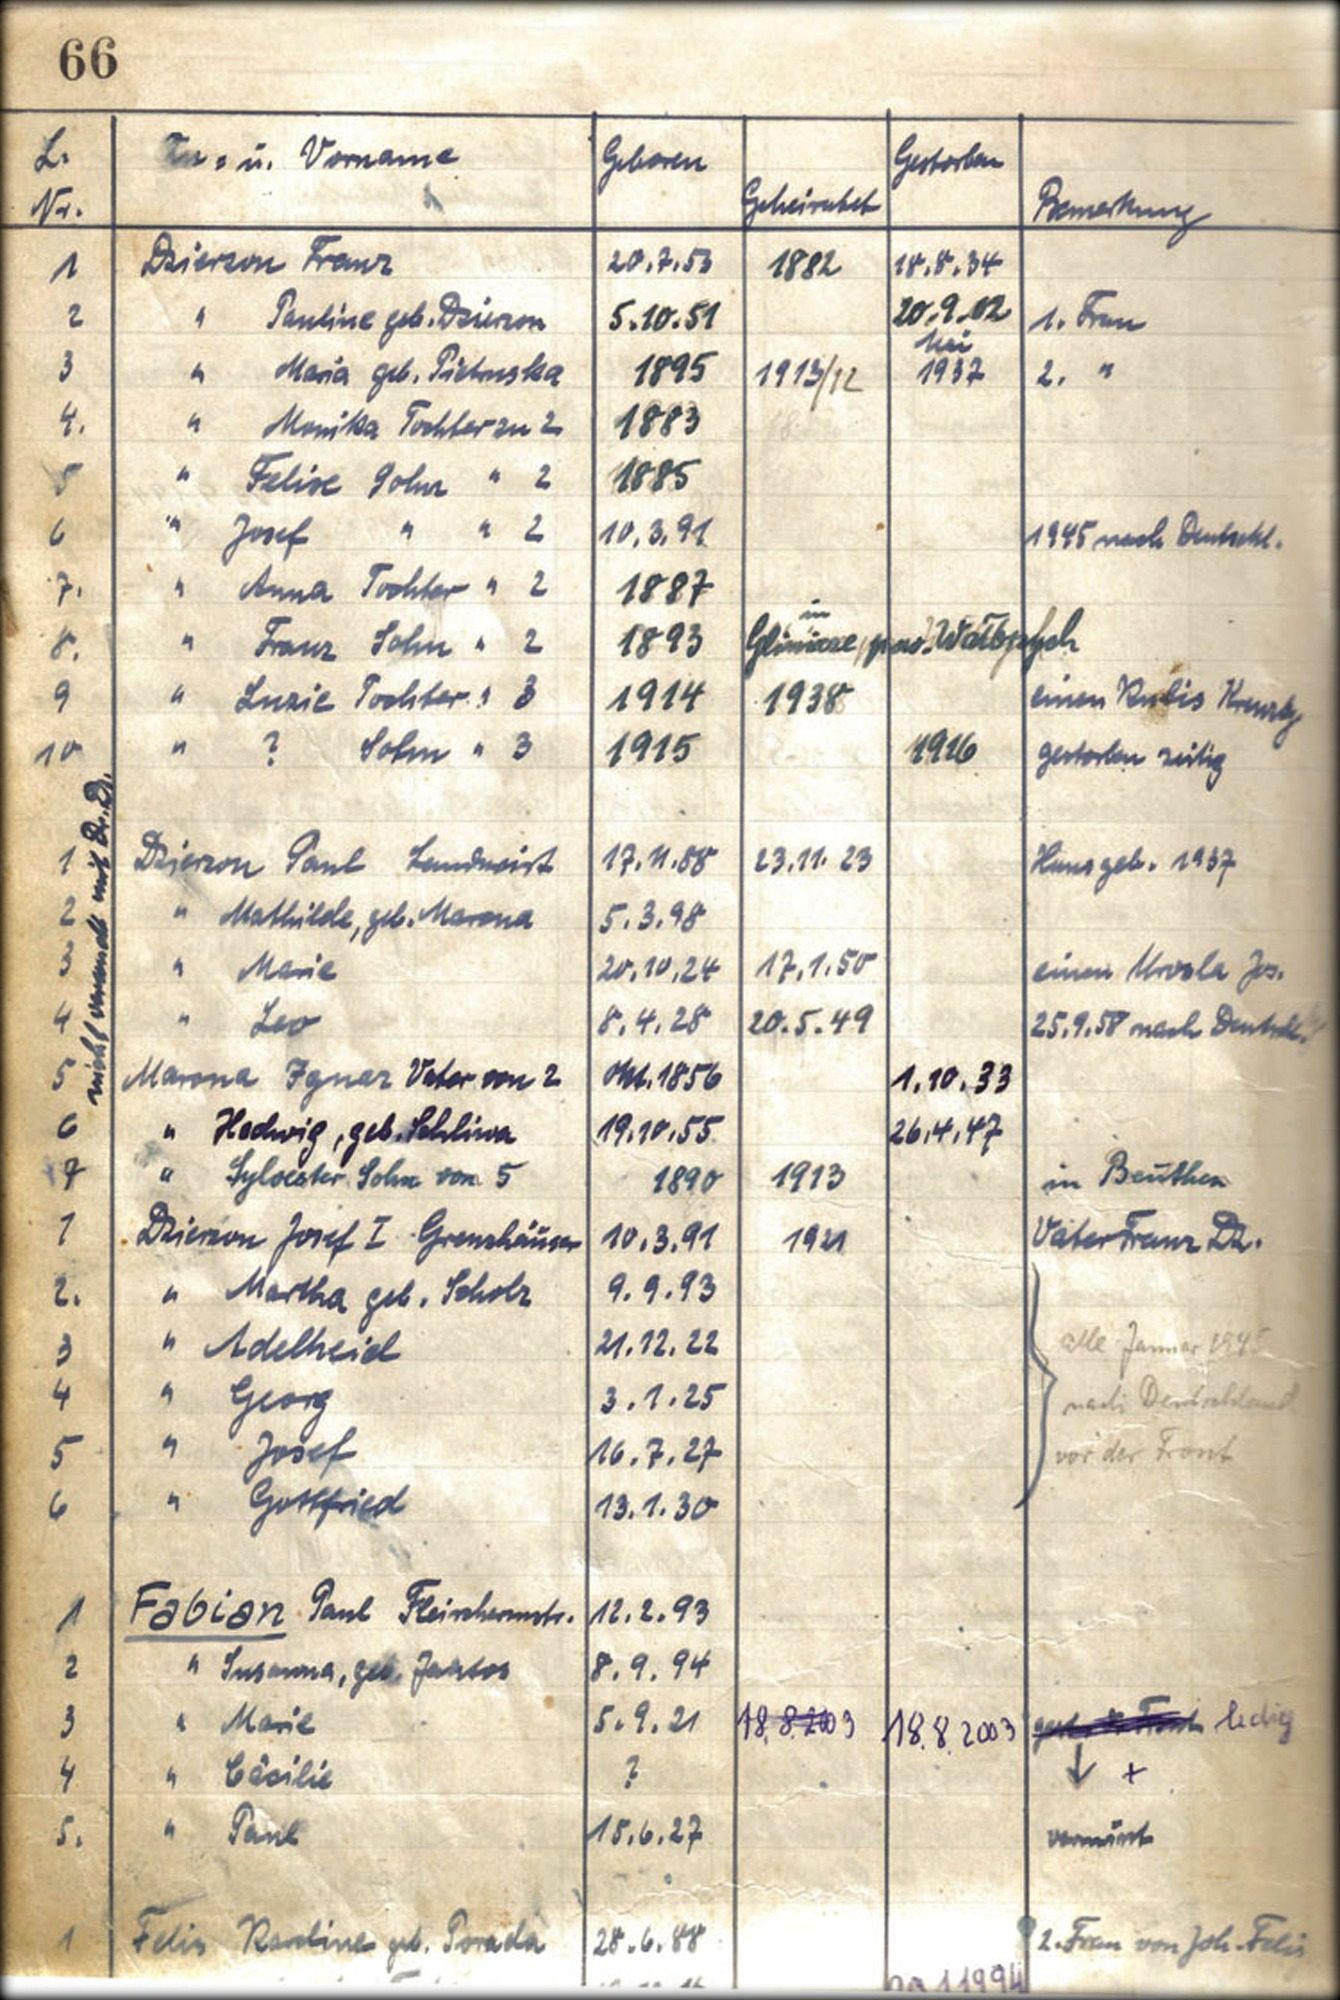 66
L. Fam. u. Vorname Geboren Gestorben
Nr. Geheiratet Bemerkung
1 Dzierzon Franz 20.7.53 1882 18.8.34
2 " Pauline geb. Dzierzon 5.10.51 20.9.02 1. Frau
Mai
3 " Maria geb. Pietruska 1895 1913/12 1937 2. "
4. " Monika Tochter zu 2 1883
5 " Felixe Sohn " 2 1885
6 " Josef " " 2 10.3.91 1945 nach Deutschl.
7. " Anna Tochter " 2 1887
in
8. " Franz Sohn " 2 1893 pow. Wałbrzych
9 " Luzie Tochter " 3 1914 1938 einen Kreuzbg
10 " ? Sohn " 3 1915 1916 gestorben zeitig
nicht verwandt mit Dr. D.
1 Dzierzon Paul Landwirt 17.11.88 23.11.23 Haus geb. 1937
2 " Mathilde, geb. Marona 5.3.98
3 " Marie 20.10.24 17.1.50 einen Jos.
4 " Leo 8.4.28 20.5.49 25.9.58 nach Deutschl.
5 Marona Ignaz Vater von 2 Okt. 1856 1.10.33
6 " Hedwig, geb. Schliwa 19.10.55 26.4.47
7 " Sylvester Sohn von 5 1890 1913 in Beuthen
1 Dzierzon Josef I Grenzhäuser 10.3.91 1921 Vater Franz Dz.
2. " Martha geb. Scholz 9.9.93
3 " Adelheid 21.12.22 alle Januar 1945
4 " Georg 3.1.25 nach Deutschland
5 " Josef 16.7.27 vor der Front
6 " Gottfried 13.1.30
1 Fabian Paul Fleischermstr. 12.2.93
2 " Susanna, geb. Jantos 8.9.94
3 " Marie 5.9.21 18.8.2003 18.8.2003 ledig
4 " Cäcilie ? ↓ +
5. " Paul 15.6.27 vermisst
1 Felis Karoline geb. Porada 28.6.88 2. Frau von Joh. Felis